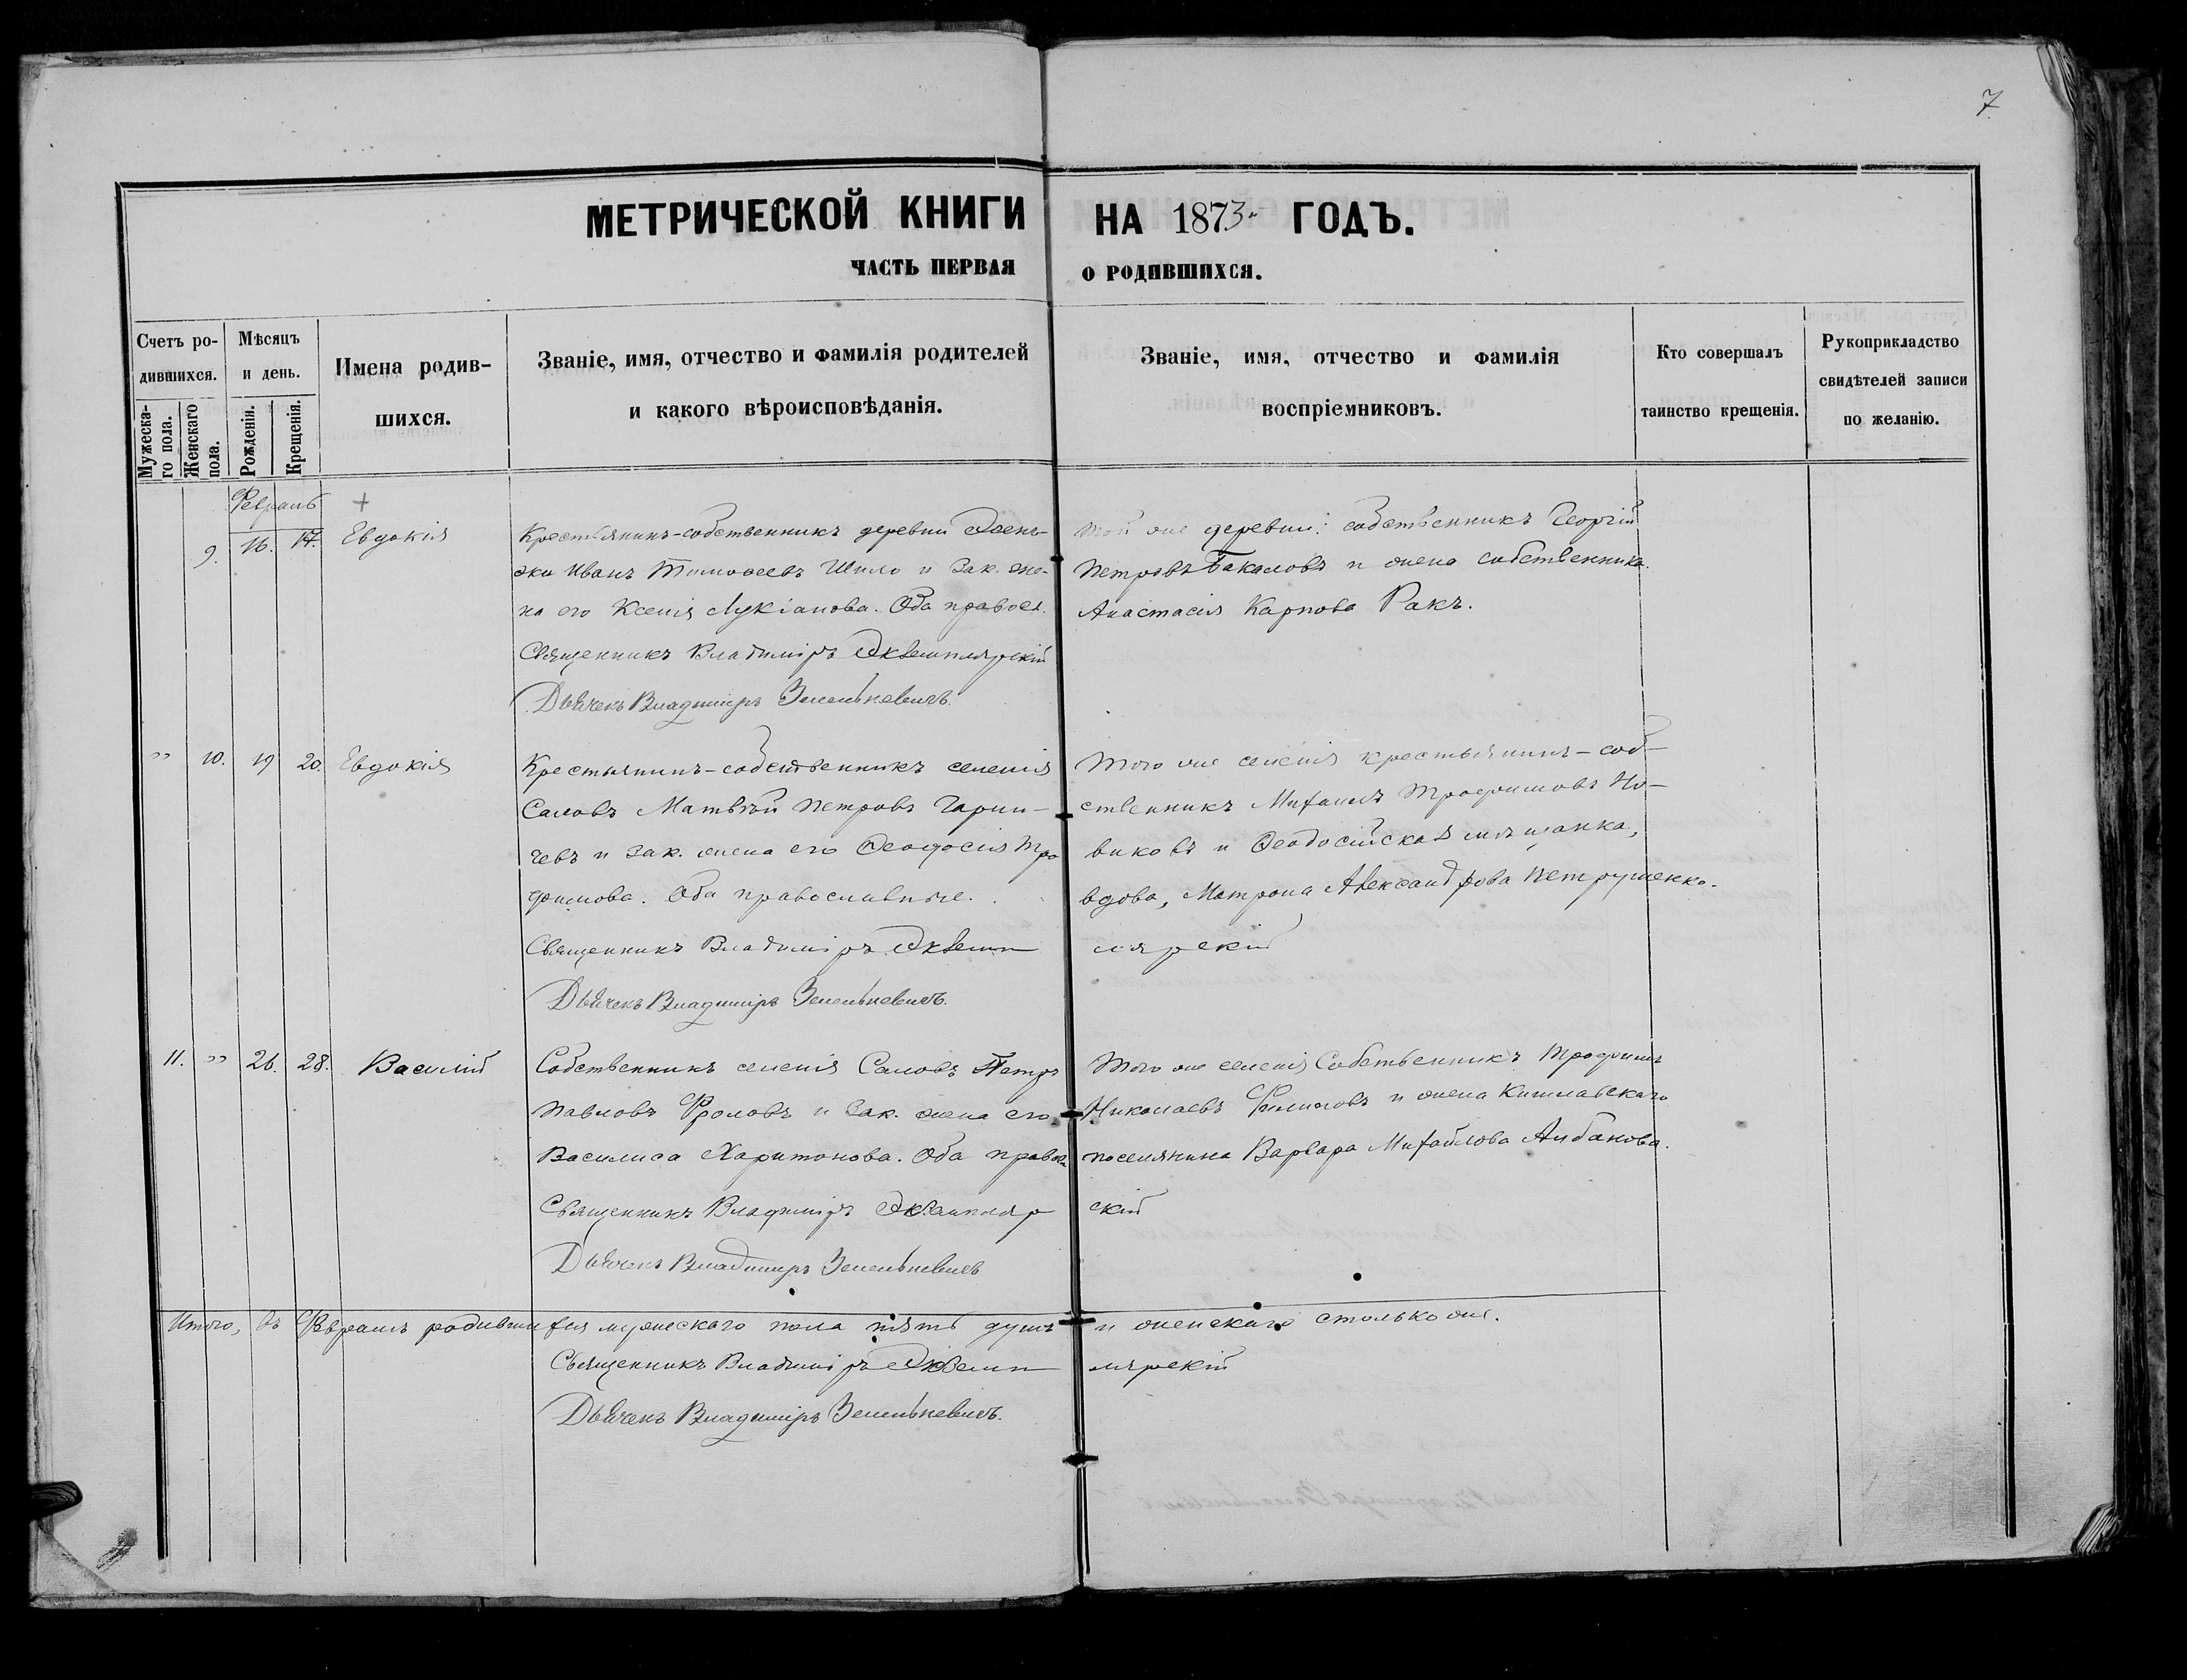 7
МЕТРИЧЕСКОЙ КНИГИ НА 1873 ГОДЪ.
ЧАСТЬ ПЕРВАЯ О РОДИВШИХСЯ.
Счетъ родившихся.
Мужескаго пола.
Женскаго пола.
Мѣсяцъ и день.
Рожденія.
Крещенія.
Имена родившихся.
Званіе, имя, отчество и фамилія родителей
и какого вѣроисповѣданія.
Званіе, имя, отчество и фамилія
воспріемниковъ.
Кто совершалъ
таинство крещенія.
Рукоприкладство
свидѣтелей записи
по желанію.
Февраль +
9. 16. 17. Евдокія
Крестьянинъ-собственникъ деревни
Иванъ Тимоѳеевъ Шило и зак. же-
на его Ксенія Лукіанова. Оба правосл.
Священникъ Владиміръ Экземплярскій
Дьячекъ Владиміръ Зеленкевичъ.
той же деревни: собственникъ Георгій
Петровъ Бакаловъ и жена собственника
Анастасія Карпова Ракъ.
" 10. 19 20. Евдокія
Крестьянинъ-собственникъ селенія
Саловъ Матвѣй Петровъ
и зак. жена его Ѳеодосія Тро
фимова. Оба православные.
Священникъ Владиміръ Экземп
Дьячекъ Владиміръ Зеленкевичъ.
Того же селенія крестьянинъ-соб-
ственникъ Михаилъ Трофимовъ Но-
виковъ и Ѳеодосійская мѣщанка,
вдова, Матрона Александрова Петрушенко.
лярскій
11. " 26. 28. Василій
Собственникъ селенія Саловъ Петръ
Павловъ Фроловъ и зак. жена его
Василиса Харитонова. Оба правосл
Священникъ Владиміръ Экземпляр
Дьячекъ Владиміръ Зеленкевичъ
Того же селенія Собственникъ Трофимъ
Николаевъ Филиповъ и жена Кишлавскаго
поселянина Варвара Михайлова Албанова.
скій
Итого, въ Февралѣ родившихся мужескаго пола пять душъ и женскаго столько же.
Священникъ Владиміръ Экземплярскій
Дьячекъ Владиміръ Зеленкевичъ.